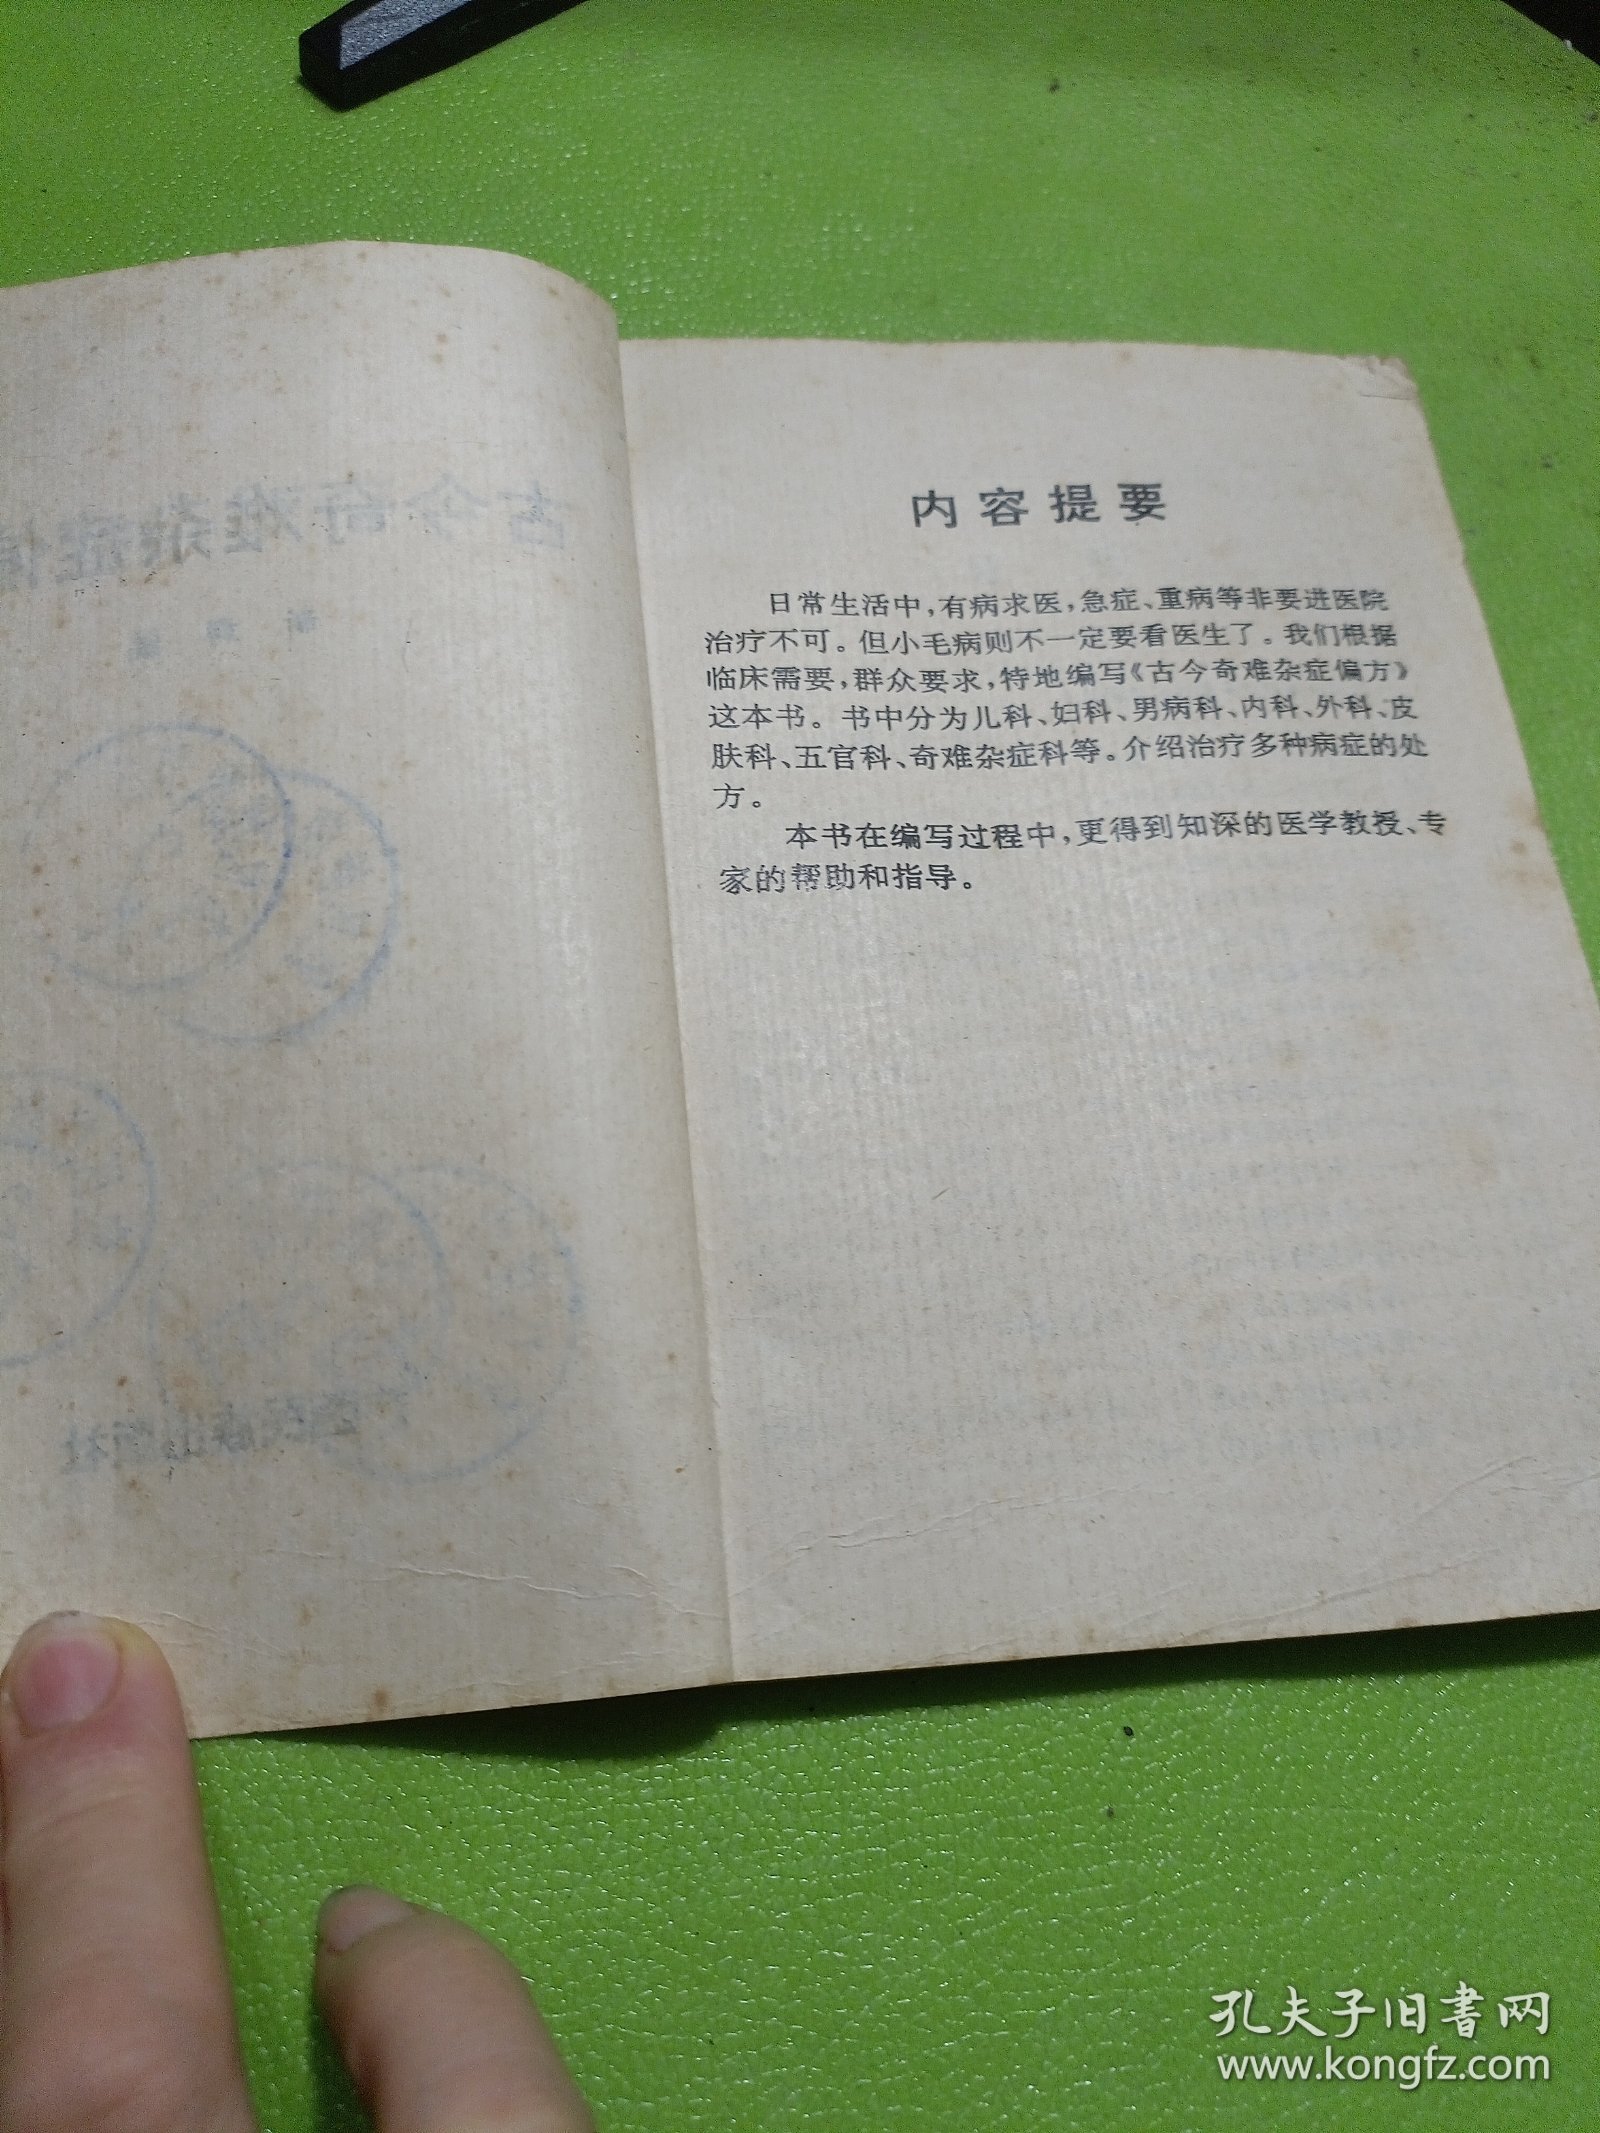 内容提要
日常生活中，有病求医，急症、重病等非要进医院
治疗不可。但小毛病则不一定要看医生了。我们根据
临床需要，群众要求，特地编写《古今奇难杂症偏方》
这本书。书中分为儿科、妇科、男病科、内科、外科、皮
肤科、五官科、奇难杂症科等。介绍治疗多种病症的处
方。
本书在编写过程中，更得到知深的医学教授、专
家的帮助和指导。
孔夫子旧书网
www.kongfz.com